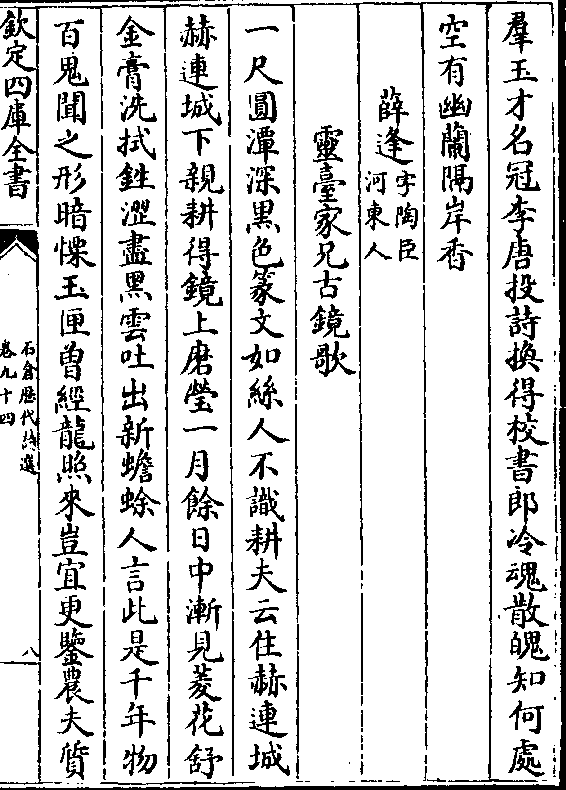 羣玉才名冠李唐投詩換得校書郎冷魂散魄知何處
空有幽蘭隔岸香
薛逢字陶臣
河東人
靈臺家兄古鏡歌
一尺圓潭深黒色篆文如絲人不識耕夫云住赫連城
赫連城下親耕得鏡上磨瑩一月餘日中漸見菱花舒
金膏洗拭鉎澀盡黒雲吐出新蟾蜍人言此是千年物
百鬼聞之形暗慄玉匣曽經龍照來豈宜更鑒農夫質
欽定四庫全書
石倉歴代詩選
卷九十四
八